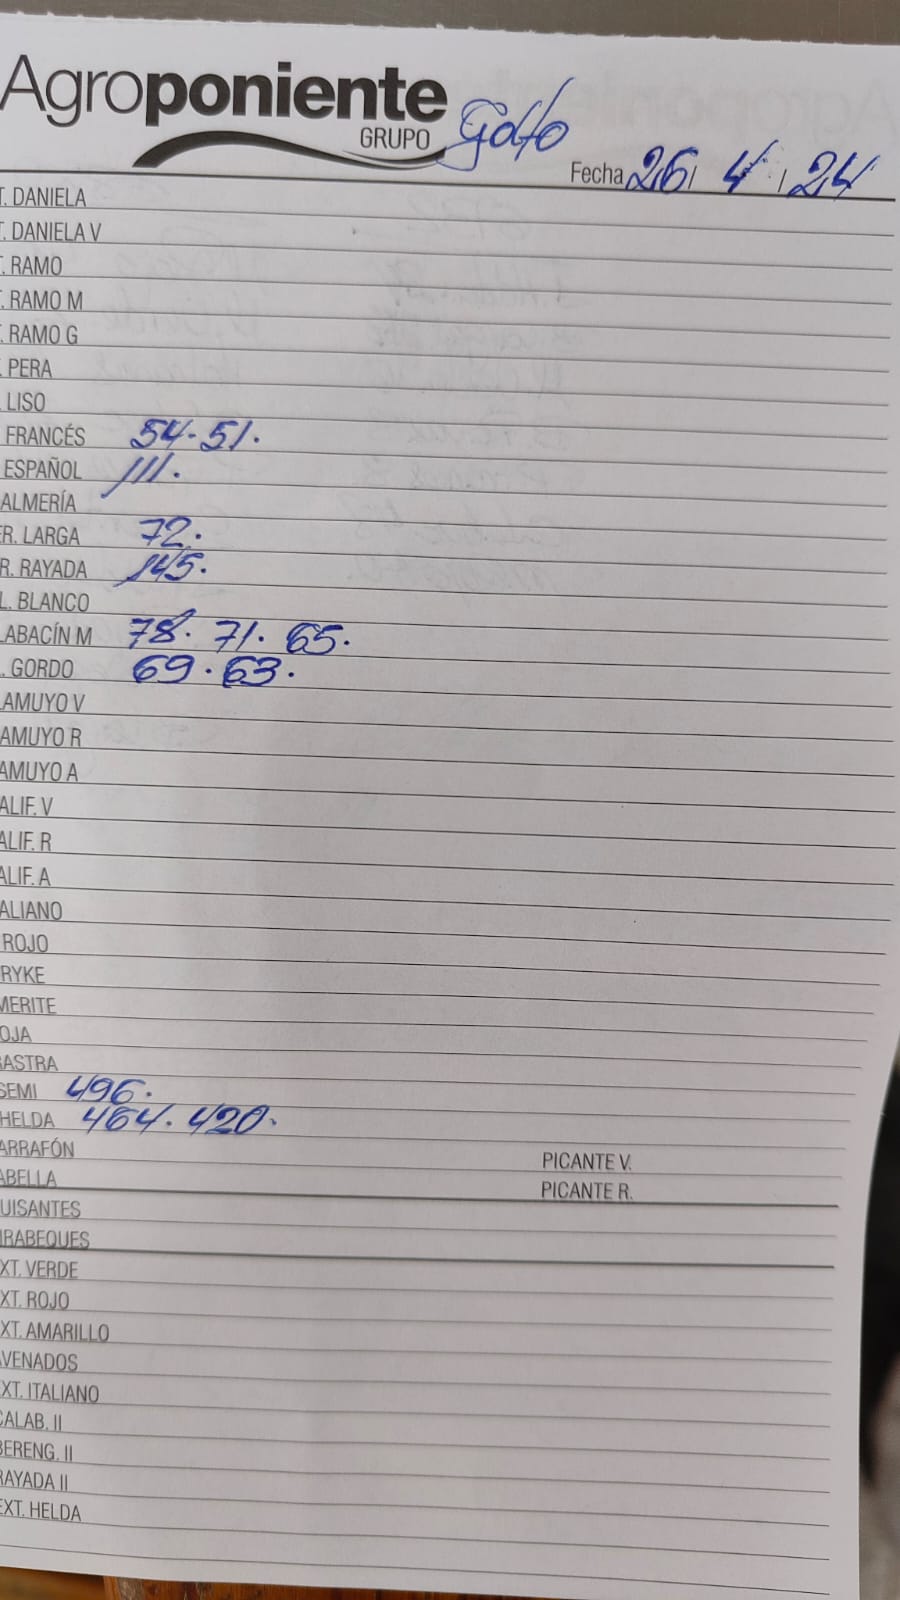 Agroponiente
GRUPO
Golfo
Fecha 26 / 4 / 24
T. DANELA
T. DANIELA V
T. RAMO
T. RAMO M
T. RAMO G
. PERA
. LISO
FRANCÉS 54. 51.
ESPAÑOL 111.
ALMERÍA
ER. LARGA 72.
R. RAYADA 145.
L. BLANCO
LABACÍN M 78. 71. 65.
. GORDO 69. 63.
LAMUYO V
AMUYO R
AMUYO A
ALIF. V
ALIF. R
ALIF. A
ALIANO
ROJO
RYKE
MERITE
OJA
RASTRA
SEMI 496.
HELDA 464. 420.
ARRAFÓN
PICANTE V.
ABELLA
PICANTE R.
UISANTES
IRABEQUES
XT. VERDE
XT. ROJO
XT. AMARILLO
VENADOS
EXT. ITALIANO
CALAB. II
BERENG. II
RAYADA II
EXT. HELDA